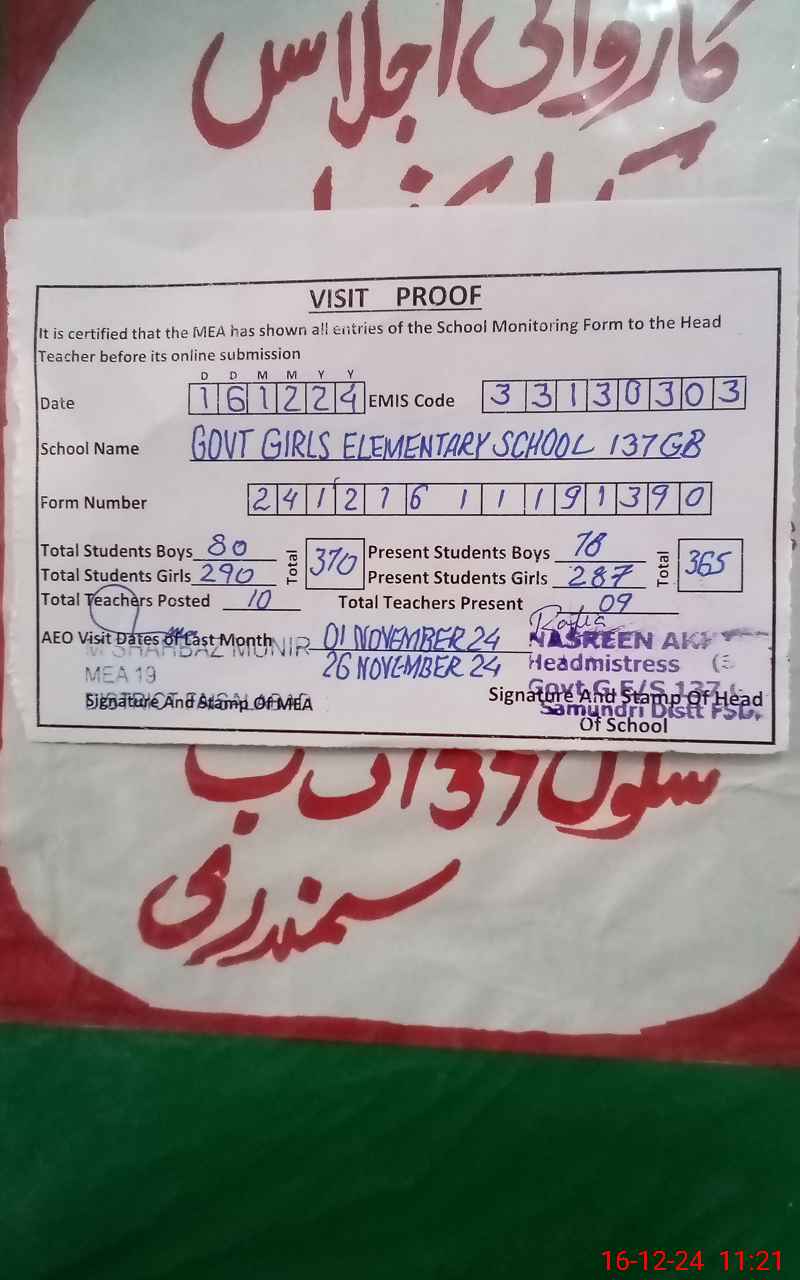 کاروائی اجلاس
VISIT PROOF
It is certified that the MEA has shown all entries of the School Monitoring Form to the Head
Teacher before its online submission
D D M M Y Y
Date 161224 EMIS Code 33130303
School Name GOVT GIRLS ELEMENTARY SCHOOL 137GB
Form Number 2412161119 1390
Total Students Boys 80 Total 370 Present Students Boys 78 Total 365
Total Students Girls 290 Present Students Girls 287
Total Teachers Posted 10 Total Teachers Present 09
AEO Visit Dates of Last Month 01 NOVEMBER 24
26 NOVEMBER 24
M SHAHBAZ MUNIR
MEA 19
DISTRICT FAISALABAD
Signature And Stamp Of MEA
NASREEN
Headmistress
Govt G.E/S 137
Samundri Distt FSD.
Signature And Stamp Of Head
Of School
سمندری
16-12-24 11:21